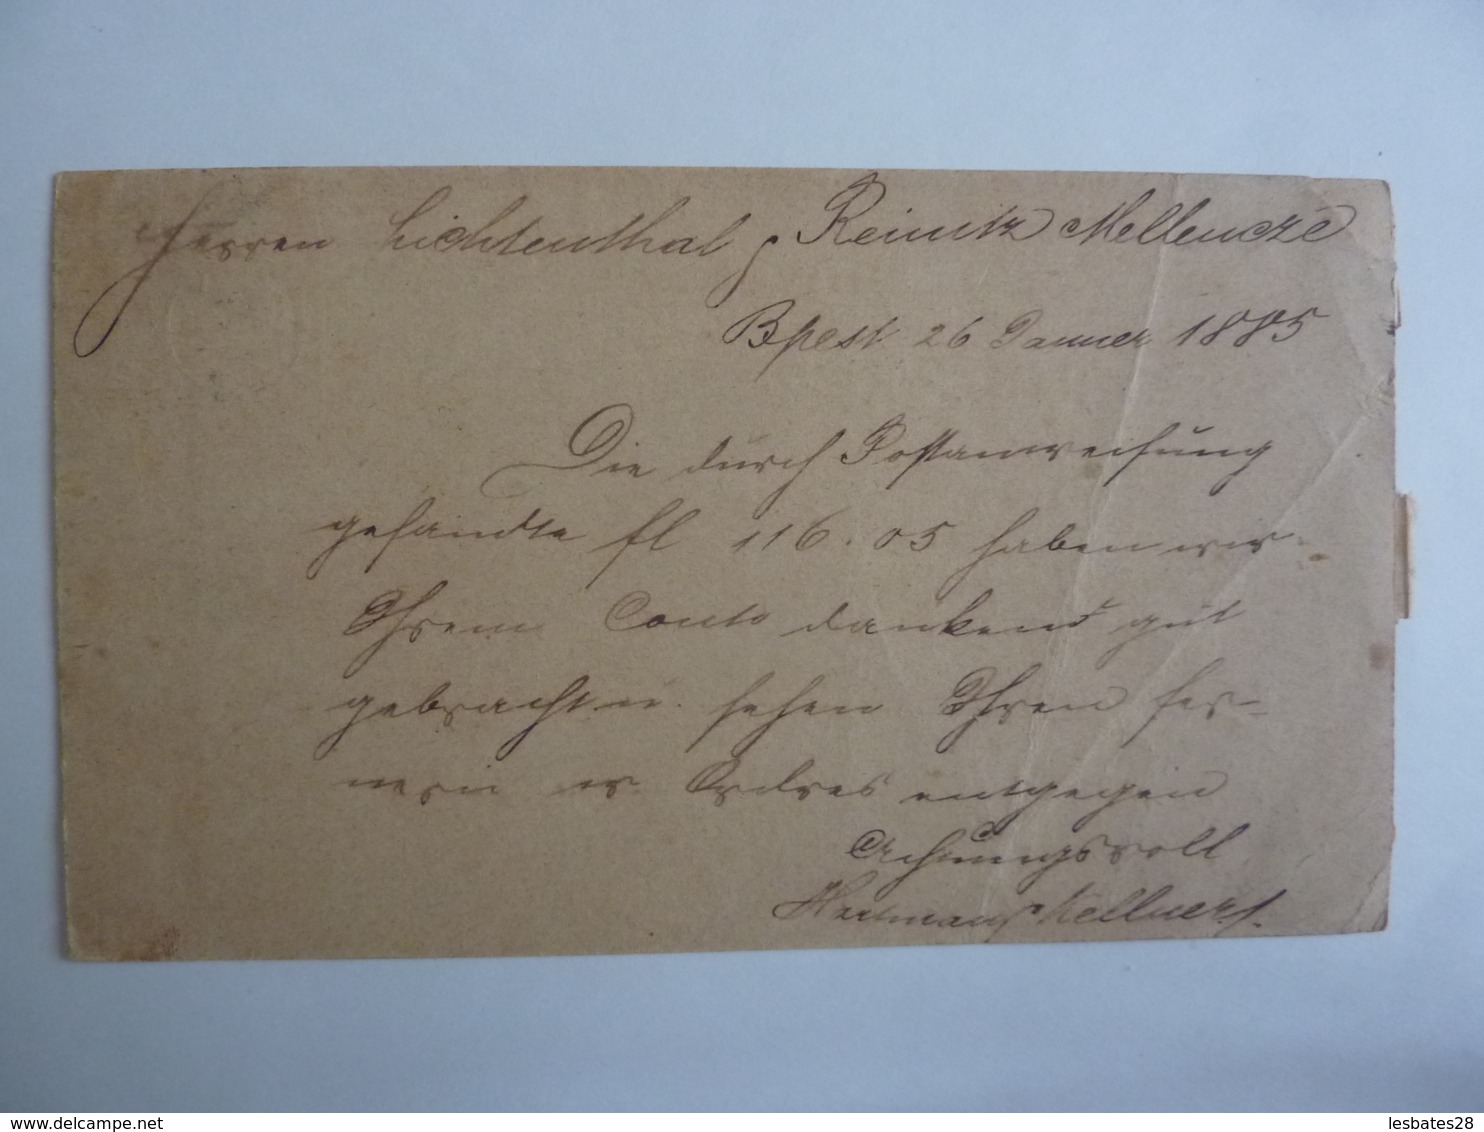 Herren Lichtenthal & Reinitz Mellencze
Bpest 26 Januer 1885
Die durch Postanweisung
gesandte fl 116.05 haben wir
Ihrem Conto dankend gut
gebracht u. sehen Ihren fer-
nern Ordres entgegen
Achtungsvoll
Hermann Kellner
delcampe.net
lesbates28